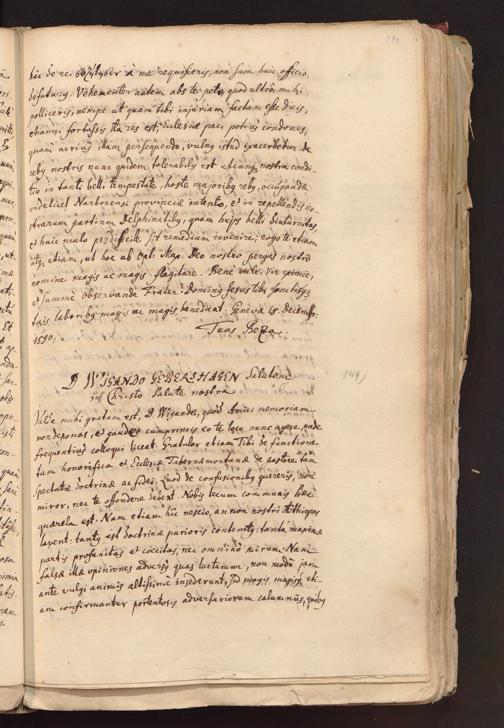 hac de re
à me requisieris, non sum huic officio,
defuturus. Vehementer autem abs te peto, quod ultrò mihi
polliceris, nempe ut quam tibi injuriam factam esse ducis,
etiamsi fortassis ita res est, Ecclesiæ paci potius condones,
quam acrius illam persequendo, vulnus istud exacerbetur. de
rebus nostris nunc quidem tolerabilis est utcunque nostra condi-
tio in tanta belli tempestate, hoste majoribus rebus, occupanda
videlicet Narbonensi provincia intento, et in repellendis no-
strarum partium Delphinatibus, quam hujus belli diuturnitas,
et huic malo perdifficile sit remedium invenire; rogo te etiam
atque etiam, ut hoc ab Opt. Max. Deo nostro pergas nostro
nomine magis ac magis flagitare. Bene vale. Vir eximie,
et summè observande Frater. Dominus Jesus tibi
tuis laboribus magis ac magis benedicat. Genevæ 15. decembr.
1590.
Tuus Beza.
D. WIGANDO GEBERSHAGEN Salutem
in Christo Salute nostra
149)
Valdè mihi gratum est, D. Wigande, quòd Amici memoriam
non deponas, et gaudeo cumprimis eo te loco nunc agere, unde
frequentius colloqui liceat. Gratulor etiam Tibi de functione
tam honorifica et Ecclesiæ Tabernæmontanæ de pastore tam
spectatæ doctrinæ ac fidei. Quod de confusionibus quereris, non
miror, nec te offendere debent. Nobis tecum communis hæc
quærela est. Nam etiam hic nescio, an non nostri Æthiopes
lavent: tantus est doctrinæ purioris contemtus: tanta maximæ
partis profanitas et cœcitas, nec omnino mirum. Nam
falsæ illæ opiniones adversus quas luctamur, non modò jam
ante vulgi animis altissimè insederunt, sed magis magisque eti-
am confirmantur portentosis adversariorum calumniis, quibus